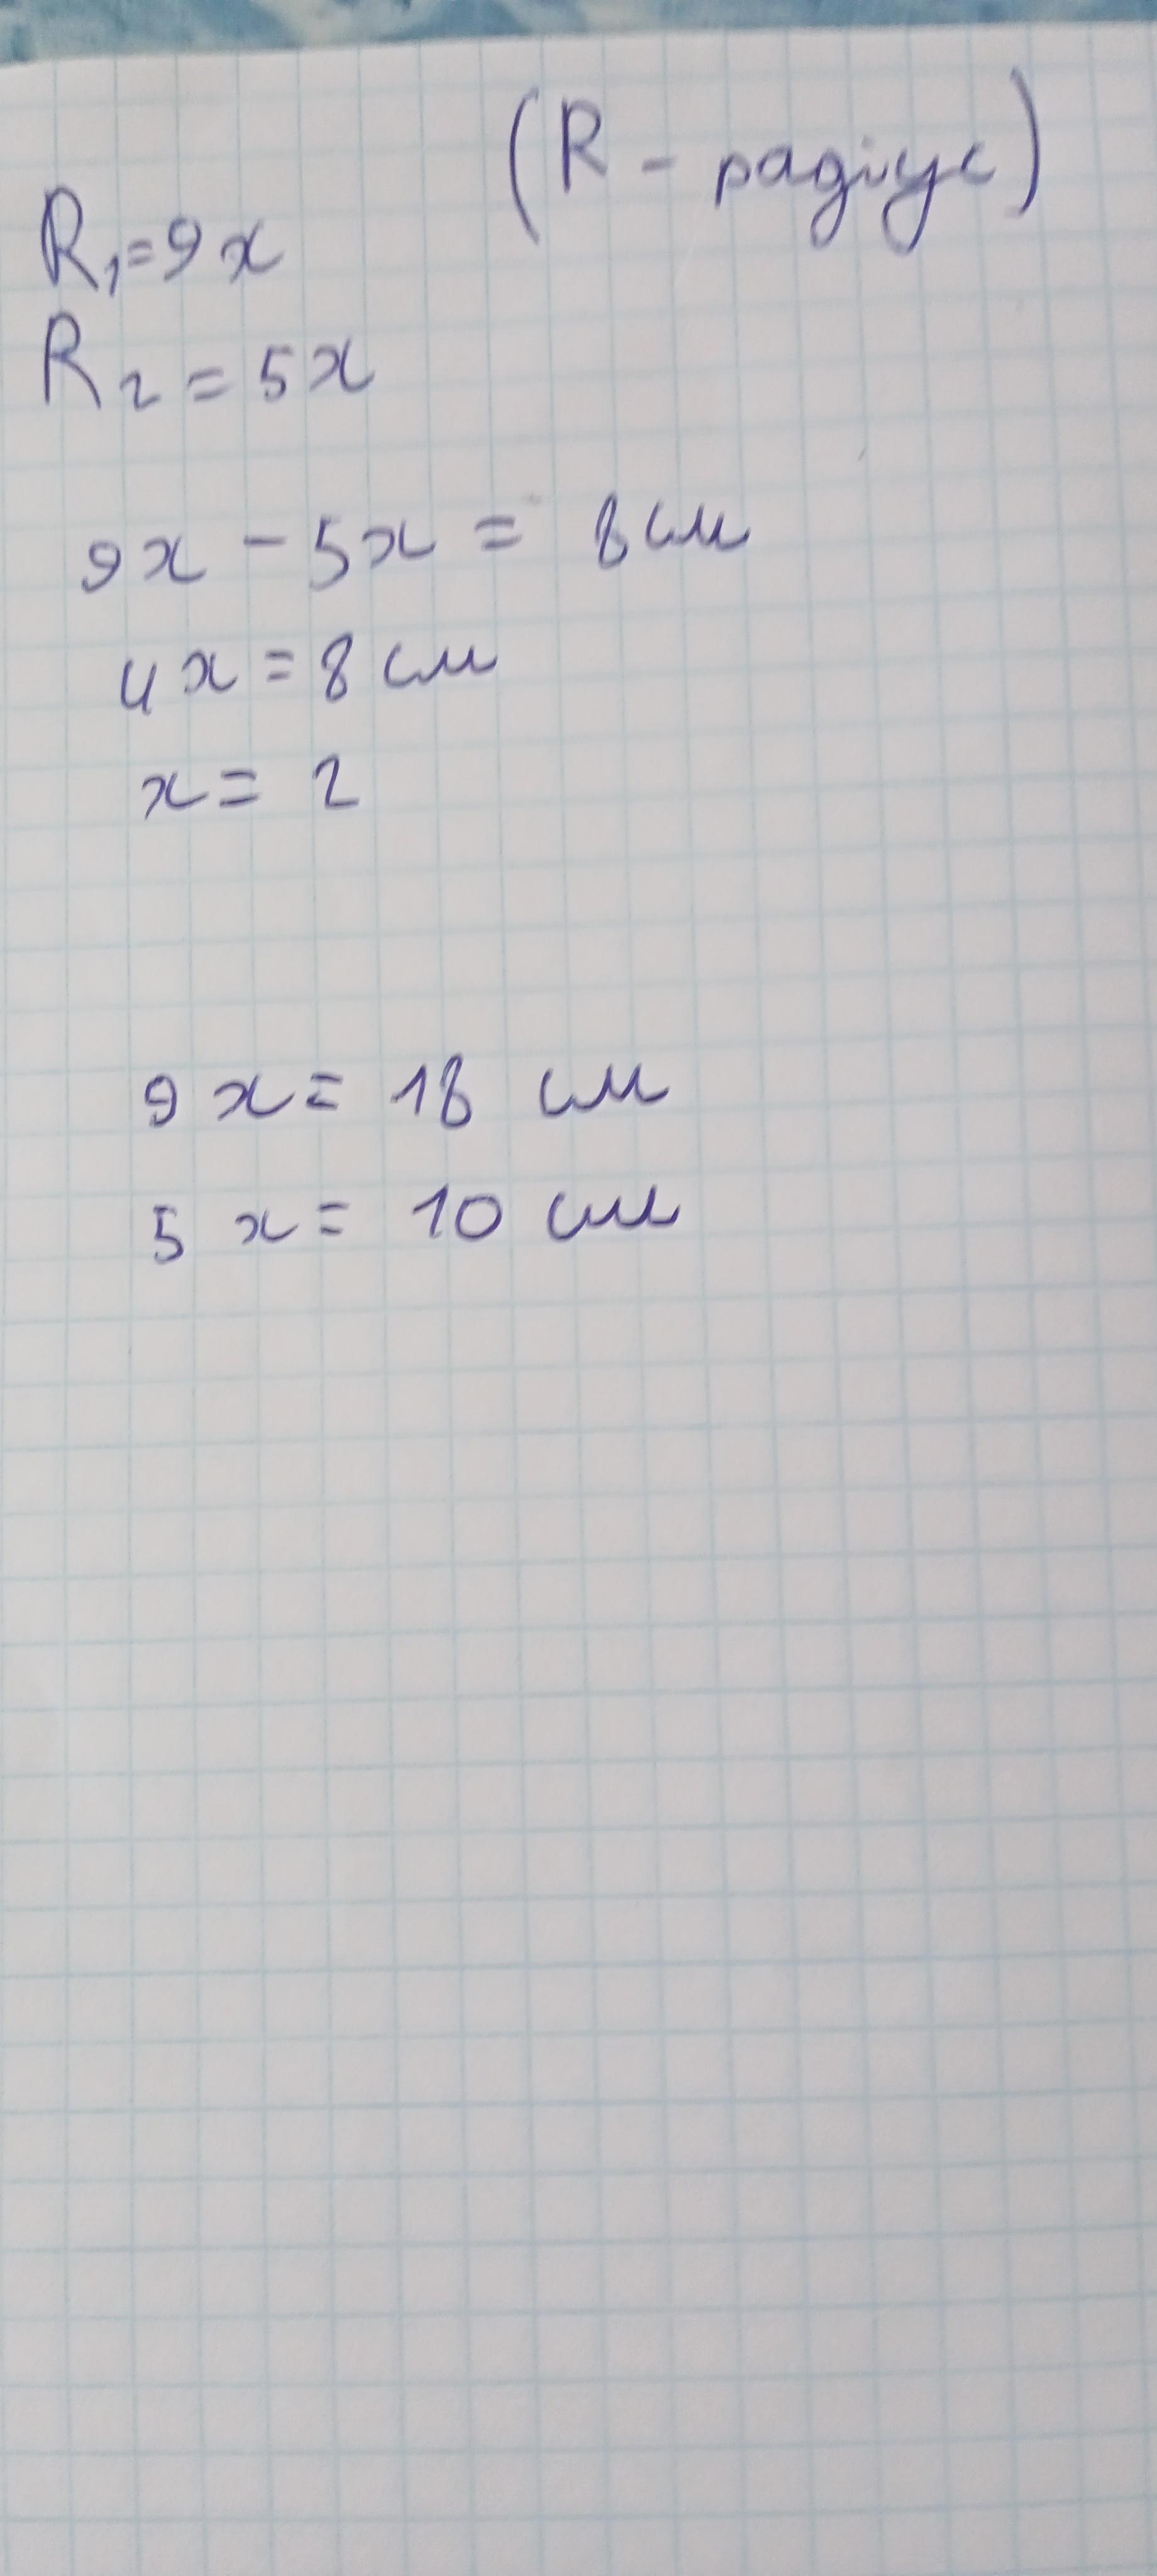 (R - радіус)
R₁=9x
R₂=5x
9x-5x= 8см
4x=8см
x=2
9x=18 см
5x=10 см